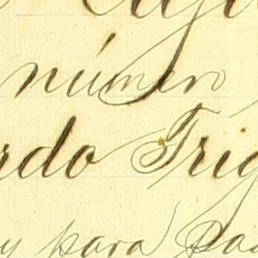 número
rdo Trig
y para Pa